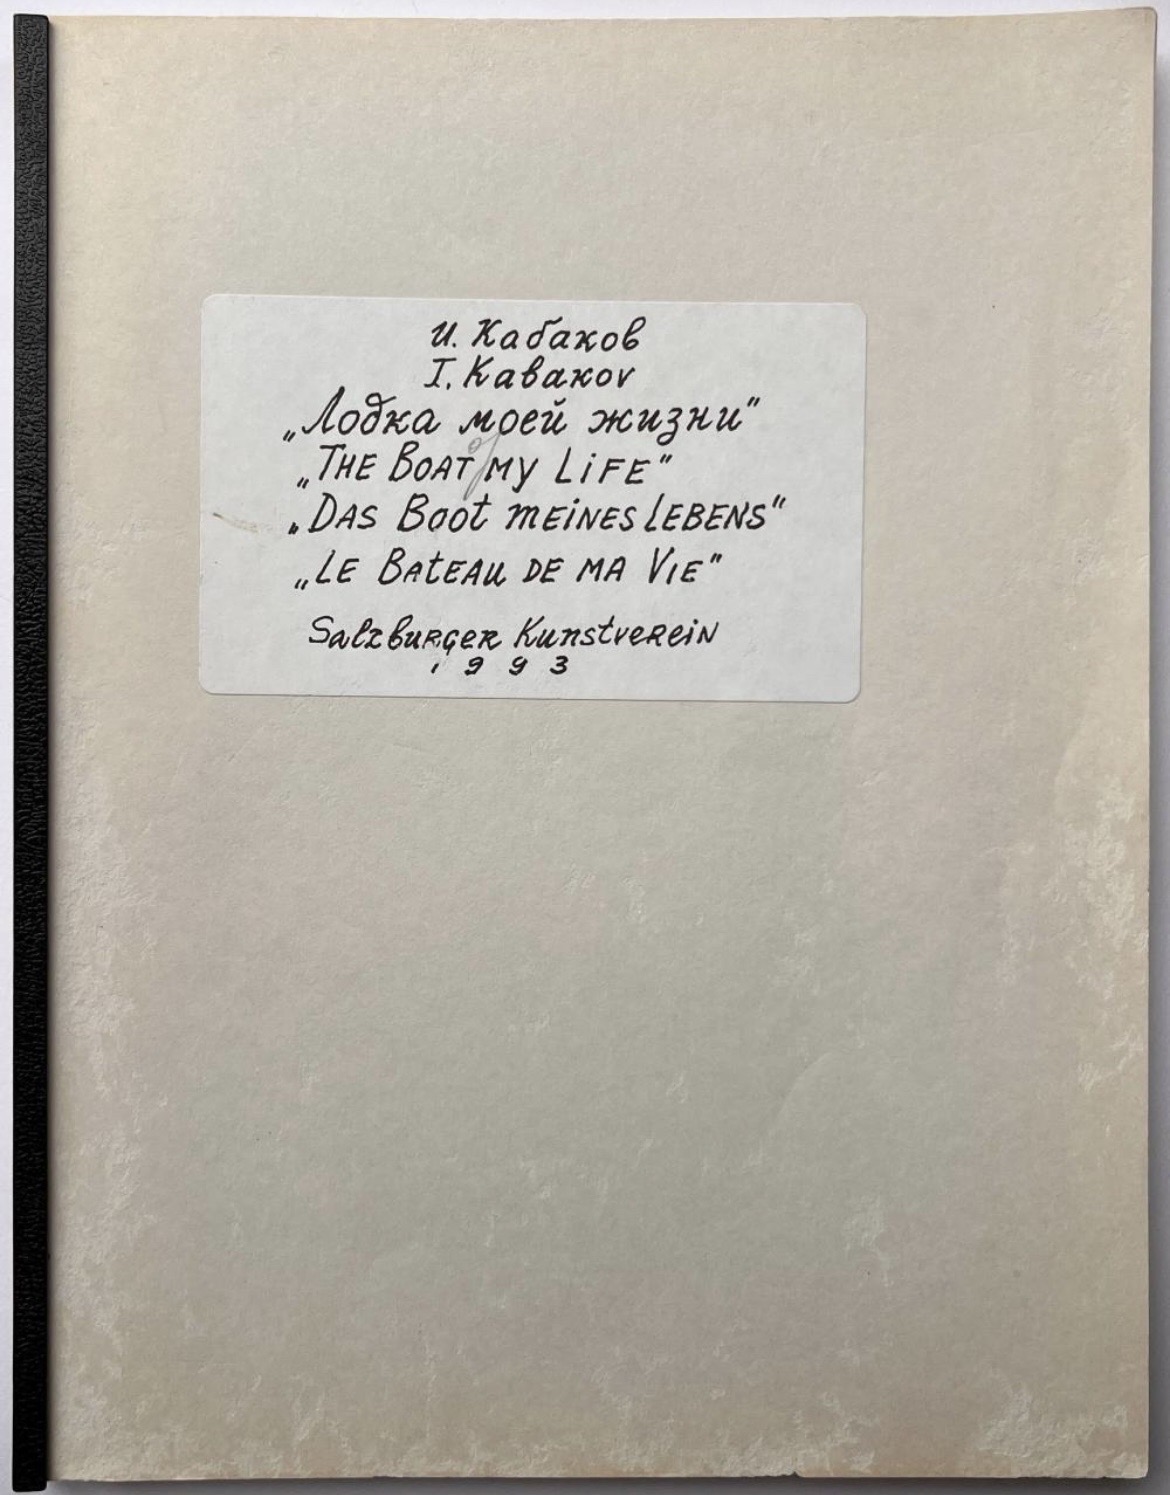 И. Кабаков
I. Kabakov
„Лодка моей жизни"
„THE BOAT of MY LiFE"
„DAS Boot MEiNES LEBENS"
„LE BAtEAu DE MA VIE"
SalzbuRgER KunstveREiN
1993